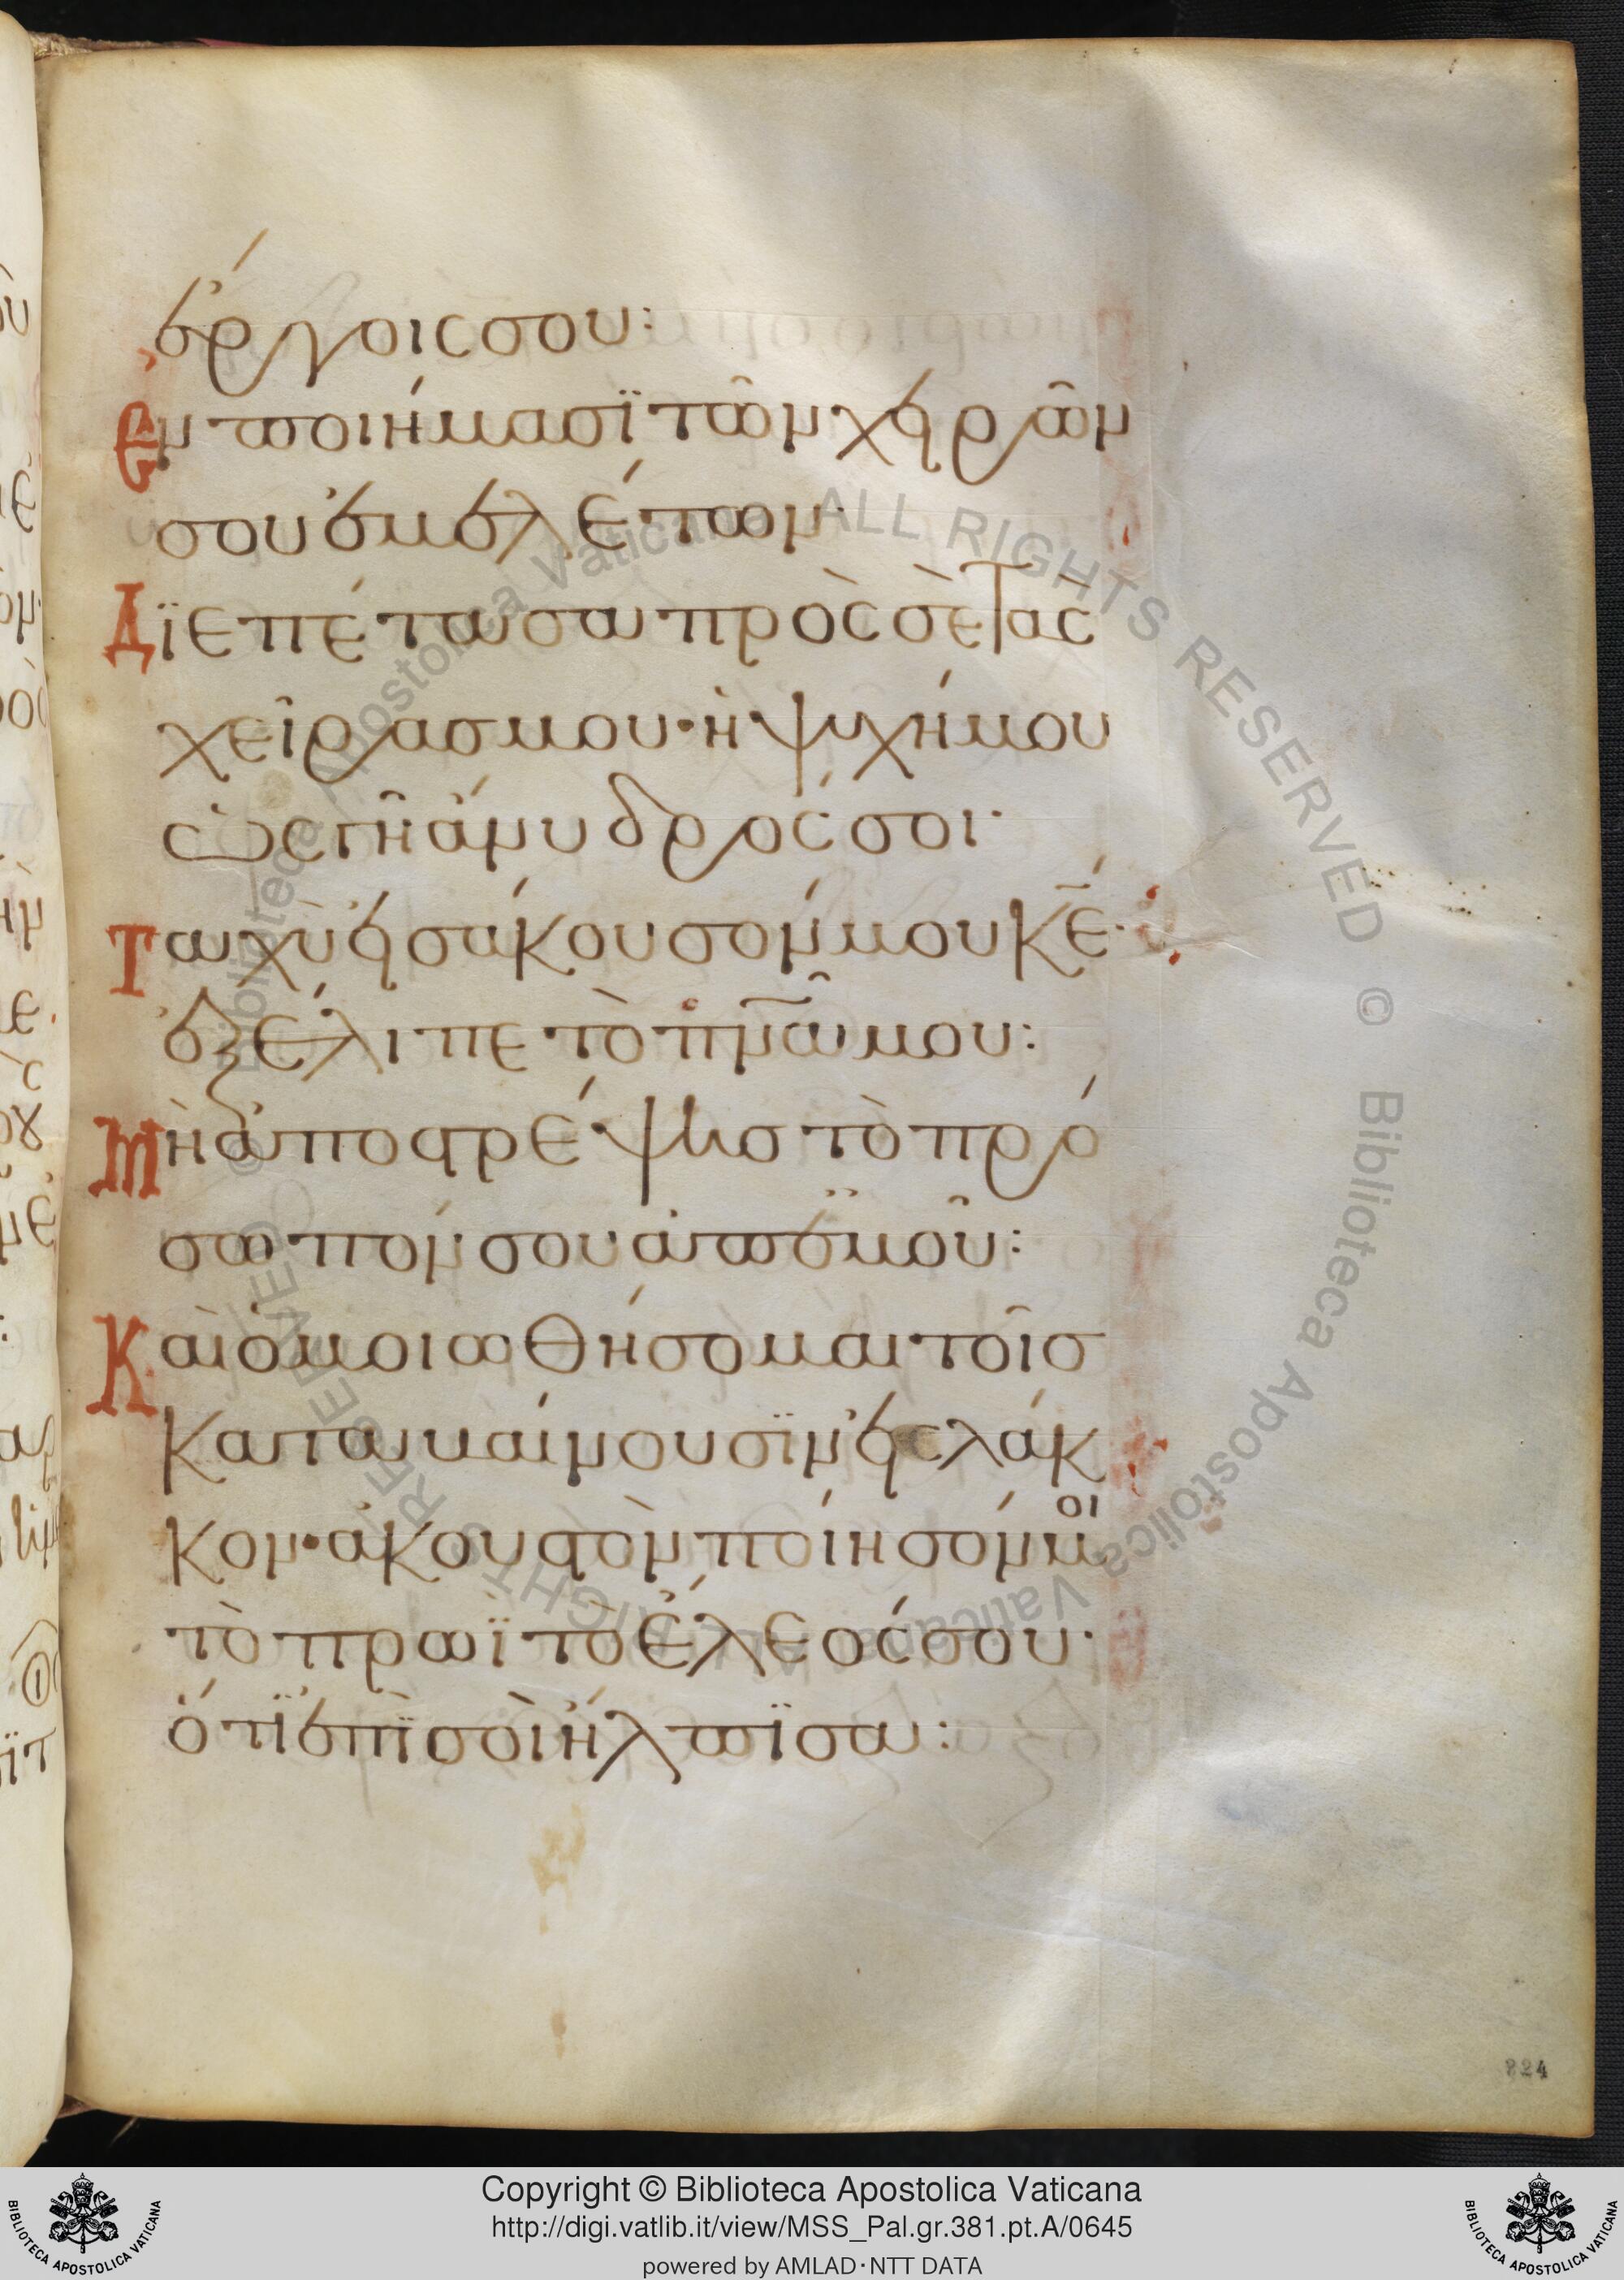 ἔργοις σου:
Ἐν ποιήμασϊ τῶν χειρῶν
σου ἐμελέτων·
Δϊεπέτασα πρὸς σὲ τὰς
χεῖρας μου· ἡ ψυχή μου
ὡς γῆ ἄνυδρός σοι·
Ταχὺ εἰσάκουσόν μου κ̅ε̅·
ἐξέλιπε τὸ π̅ν̅ᾶ̅ μου:
Μὴ ἀποστρέψῃς τὸ πρό
σωπόν σου ἀπ ἐμοῦ:
Καὶ ὁμοιωθήσομαι τοῖς
καταβαίνουσϊν εἰς λάκ
κον· ἀκουστὸν ποίησόν μοι
τὸ πρωῒ τὸ ἔλεός σου·
ὅτϊ ἐπῒ σοὶ ἤλπϊσα:
224
© Biblioteca Apostolica Vaticana ALL RIGHTS RESERVED © Biblioteca Apostolica Vaticana ALL RIGHTS RESERVED
Copyright © Biblioteca Apostolica Vaticana
http://digi.vatlib.it/view/MSS_Pal.gr.381.pt.A/0645
powered by AMLAD·NTT DATA
BIBLIOTECA APOSTOLICA VATICANA
BIBLIOTECA APOSTOLICA VATICANA